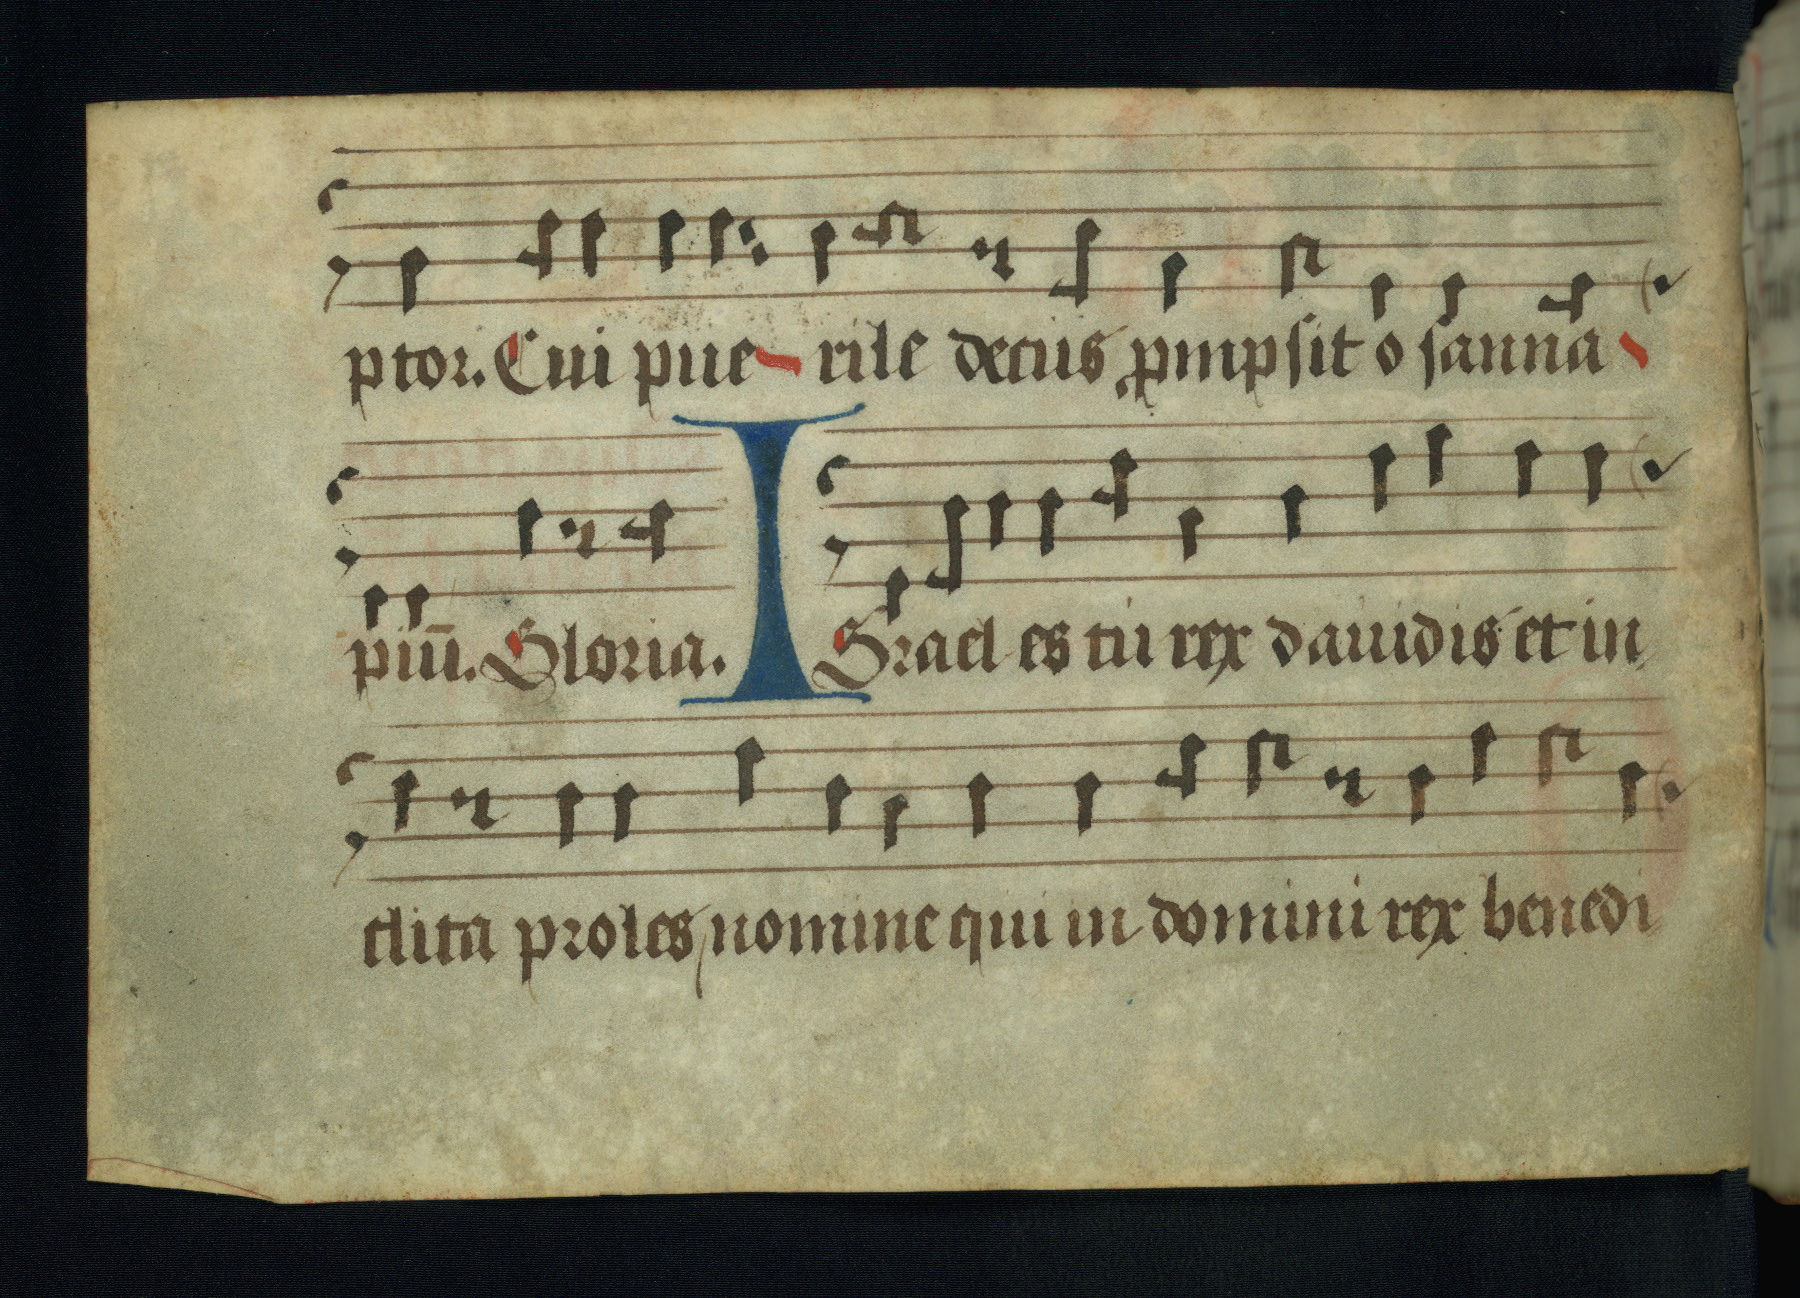 ptor. Cui pue rile decus ꝓmpſit o ſanna
piū. Gloria. ISrael es tu rex dauidis et in
clita proles nomine qui in domini rex benedi